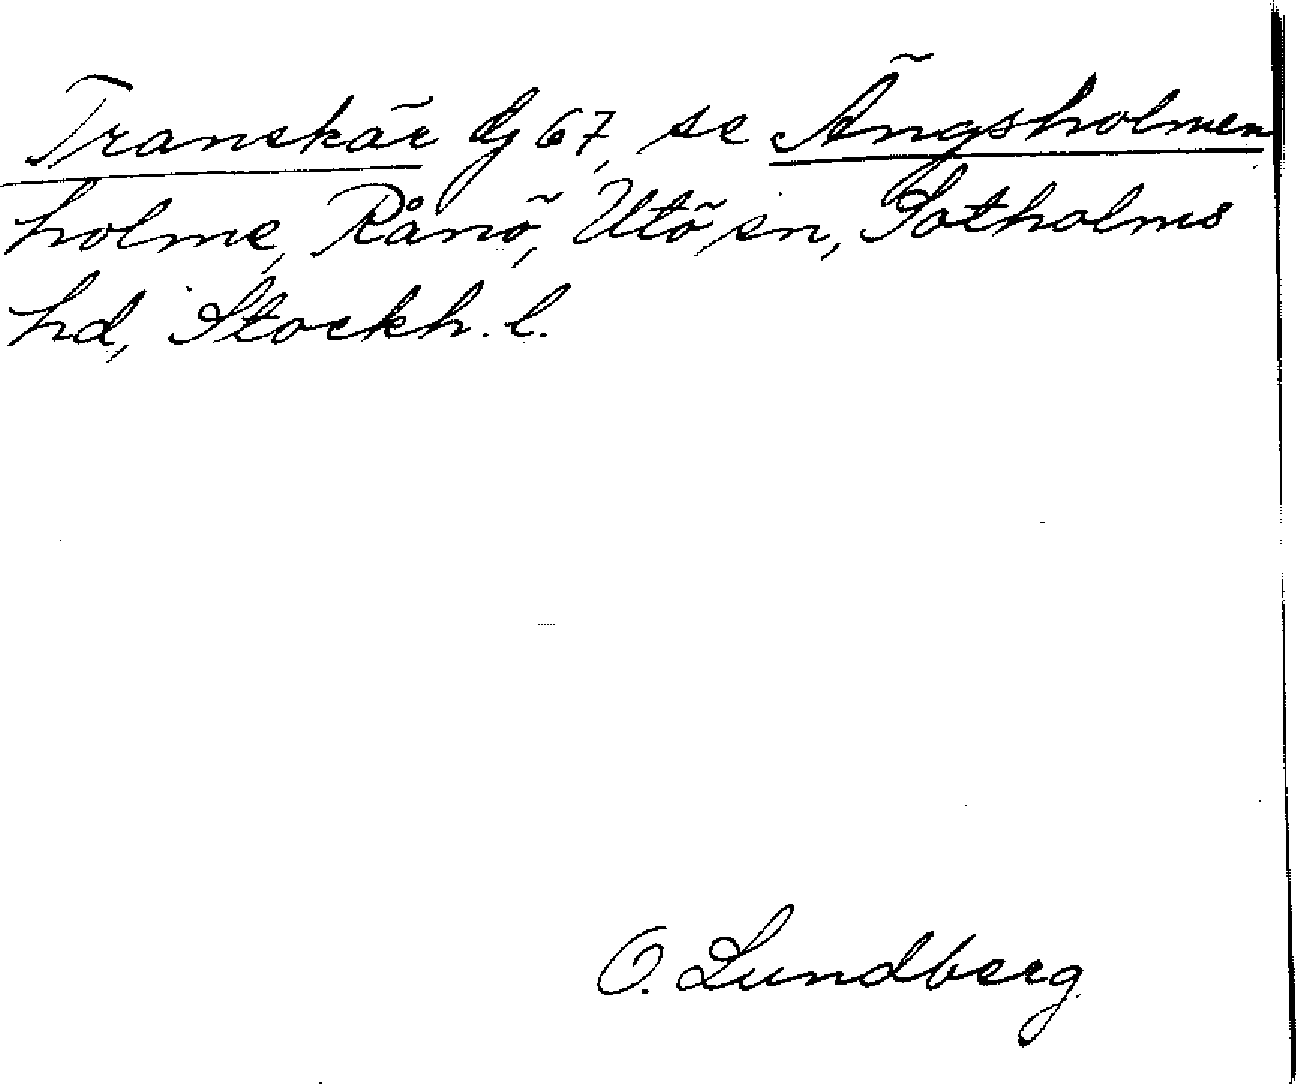 Transkär Gj 67, se Ängsholmen
holme, Rånö, Utö sn, Sotholms
hd, Stockh. l.
O. Lundberg